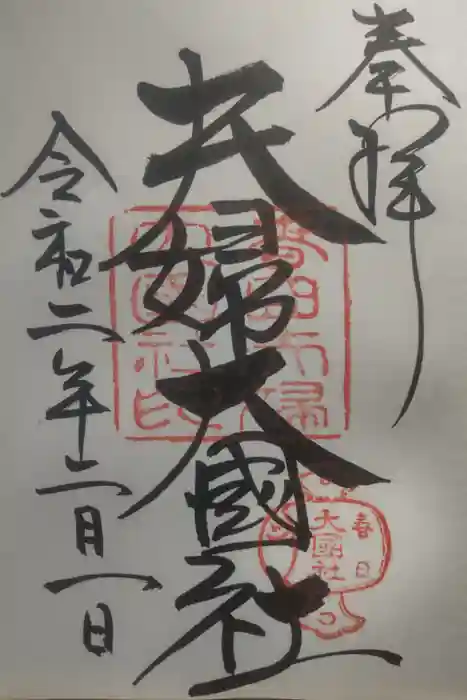 奉拝
夫婦大國社
令和二年二月一日
春日
大國社